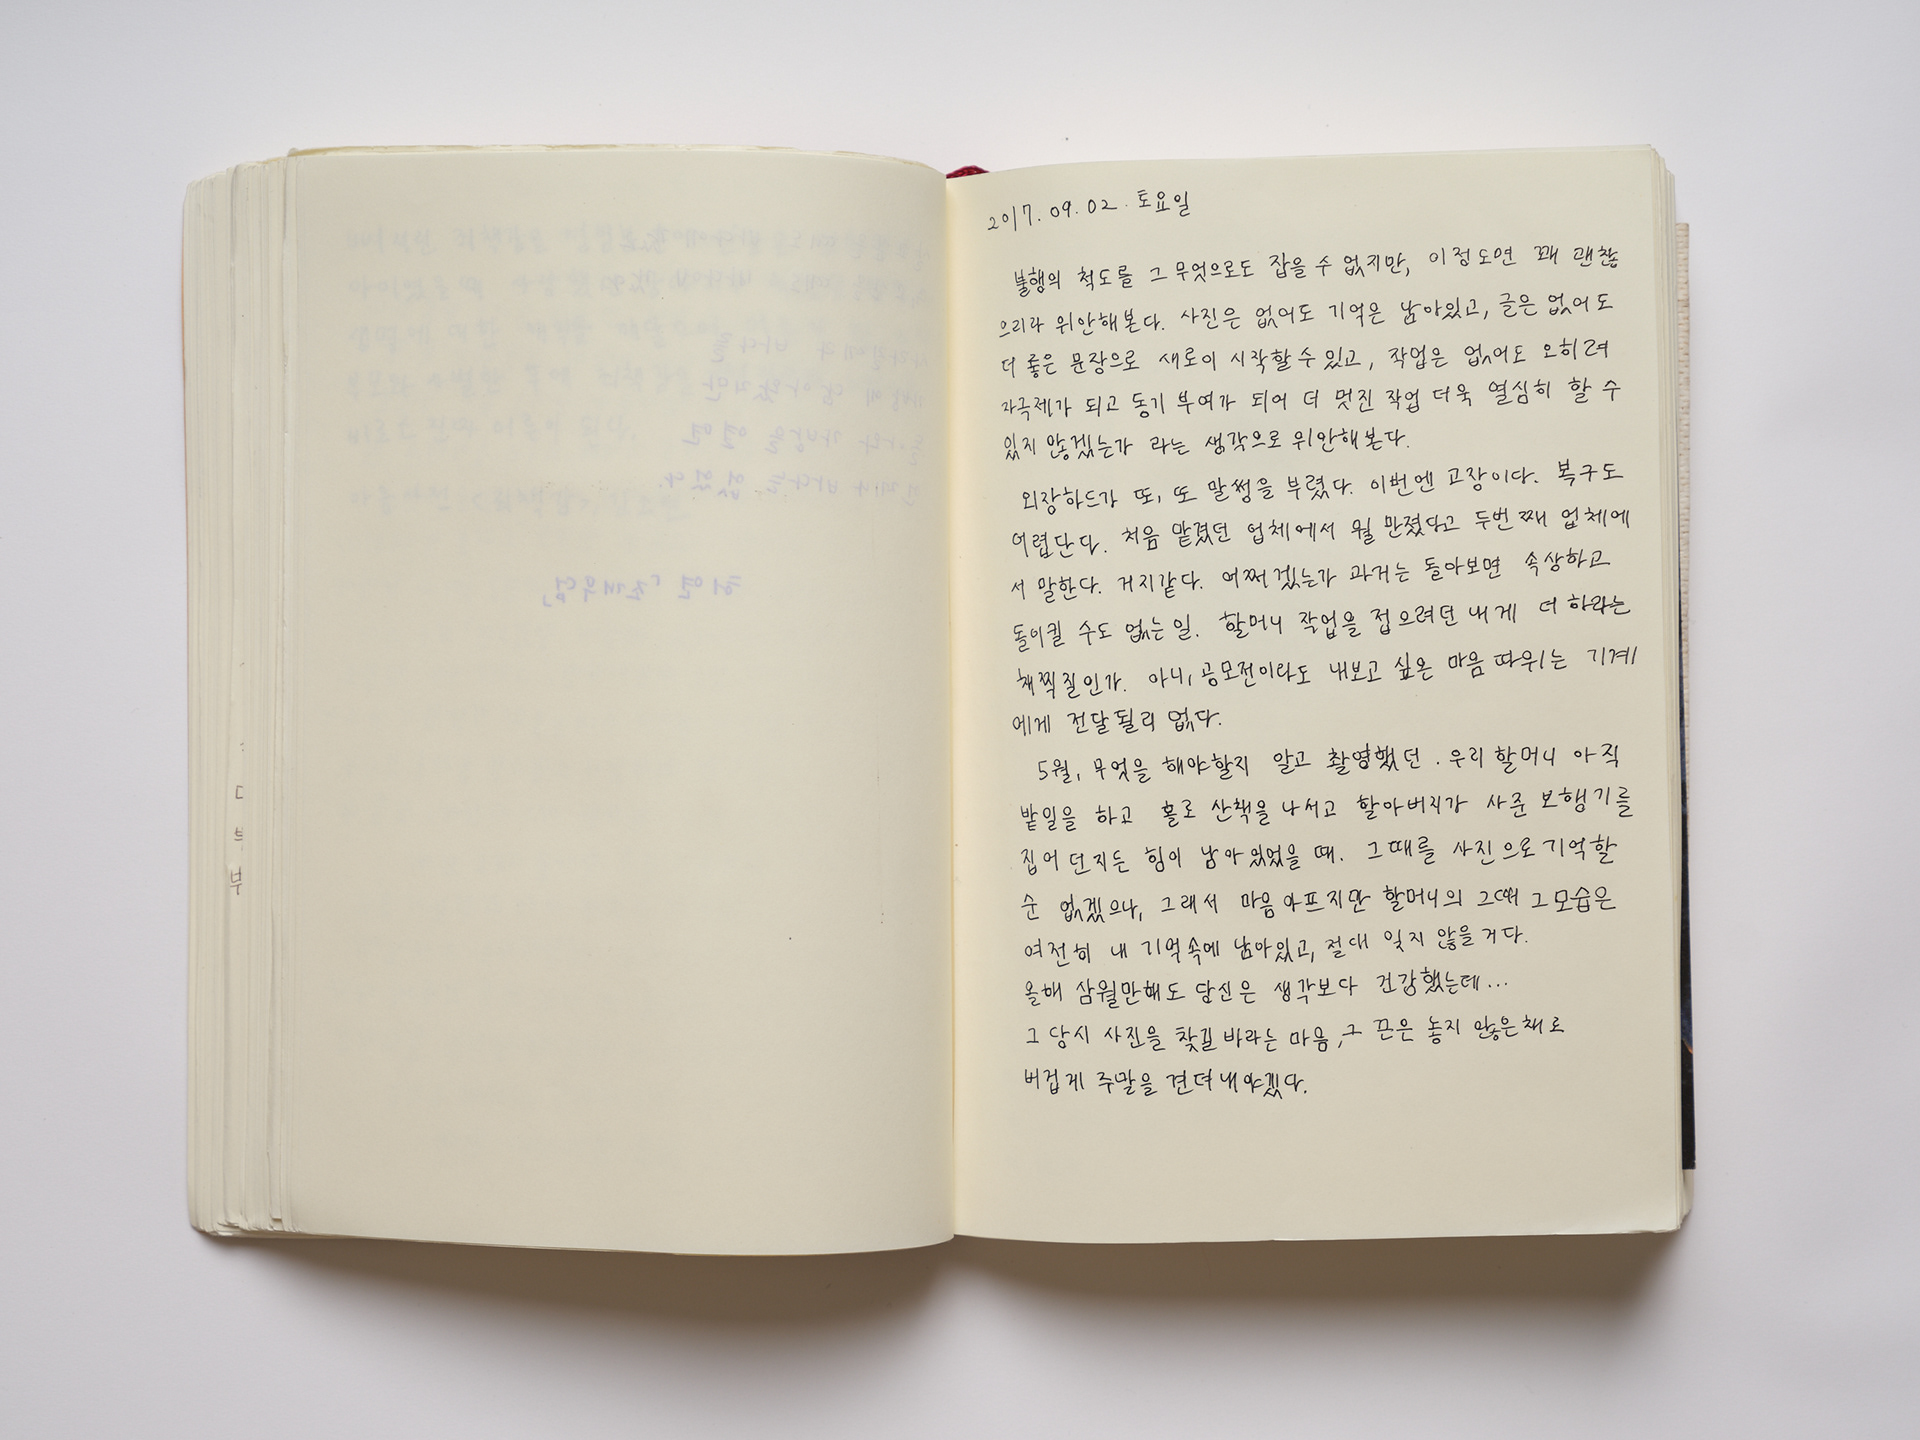 2017. 09. 02. 토요일
불행의 척도를 그 무엇으로도 잡을 수 없지만, 이정도면 꽤 괜찮
으리라 위안해본다. 사진은 없어도 기억은 남아있고, 글은 없어도
더 좋은 문장으로 새로이 시작할 수 있고, 작업은 없어도 오히려
자극제가 되고 동기 부여가 되어 더 멋진 작업 더욱 열심히 할 수
있지 않겠는가 라는 생각으로 위안해본다.
외장하드가 또, 또 말썽을 부렸다. 이번엔 고장이다. 복구도
어렵단다. 처음 맡겼던 업체에서 뭘 만졌다고 두번째 업체에
서 말한다. 거지같다. 어쩌겠는가 과거는 돌아보면 속상하고
돌이킬 수도 없는 일. 할머니 작업을 접으려던 내게 더 하라는
채찍질인가. 아니, 공모전이라도 내보고 싶은 마음 따위는 기계
에게 전달될리 없다.
5월, 무엇을 해야할지 알고 촬영했던. 우리 할머니 아직
밭일을 하고 홀로 산책을 나서고 할아버지가 사준 보행기를
집어 던지는 힘이 남아 있었을 때. 그때를 사진으로 기억할
순 없겠으나, 그래서 마음 아프지만 할머니의 그때 그 모습은
여전히 내 기억속에 남아있고, 절대 잊지 않을 거다.
올해 삼월만해도 당신은 생각보다 건강했는데...
그 당시 사진을 찾길 바라는 마음, 그 끈은 놓지 않은채로
버겁게 주말을 견뎌내야겠다.